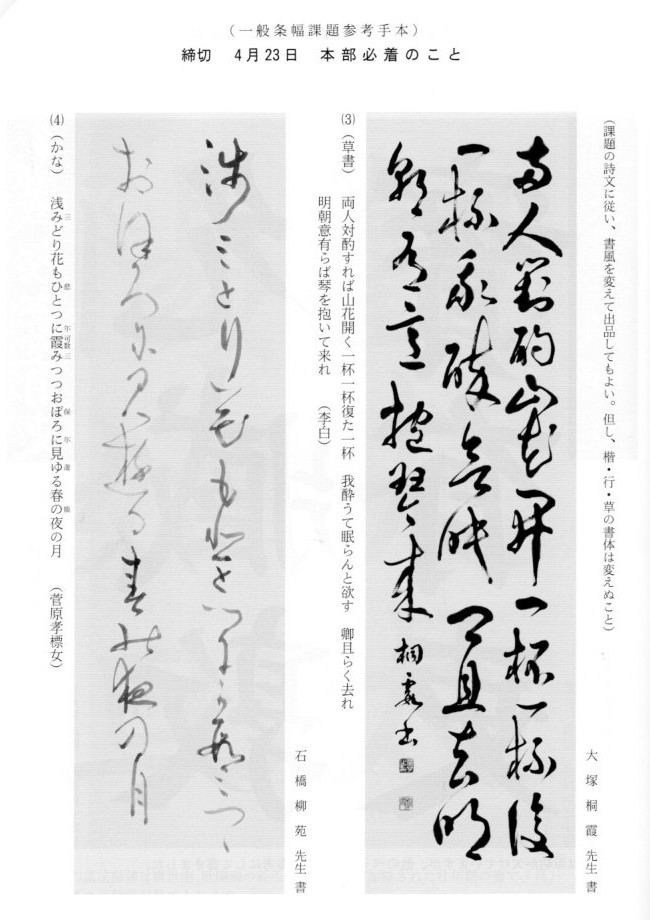 （一般条幅課題参考手本）
締切　4月23日　本部必着のこと
（課題の詩文に従い、書風を変えて出品してもよい。但し、楷・行・草の書体は変えぬこと）
大塚桐霞先生書
両人對酌山花開一杯一杯復
一杯我酔欲眠卿且去明
朝有意抱琴来　桐霞書
⑶（草書）　両人対酌すれば山花開く一杯一杯復た一杯　我酔うて眠らんと欲す　卿且らく去れ
明朝意有らば琴を抱いて来れ　（李白）
石橋柳苑先生書
浅三とり花も悲とつ尓可数三つゝ
お保ろ尓見遊る春能夜の月
三　悲　尓可数三　保　尓　遊　能
⑷（かな）　浅みどり花もひとつに霞みつつおぼろに見ゆる春の夜の月　（菅原孝標女）